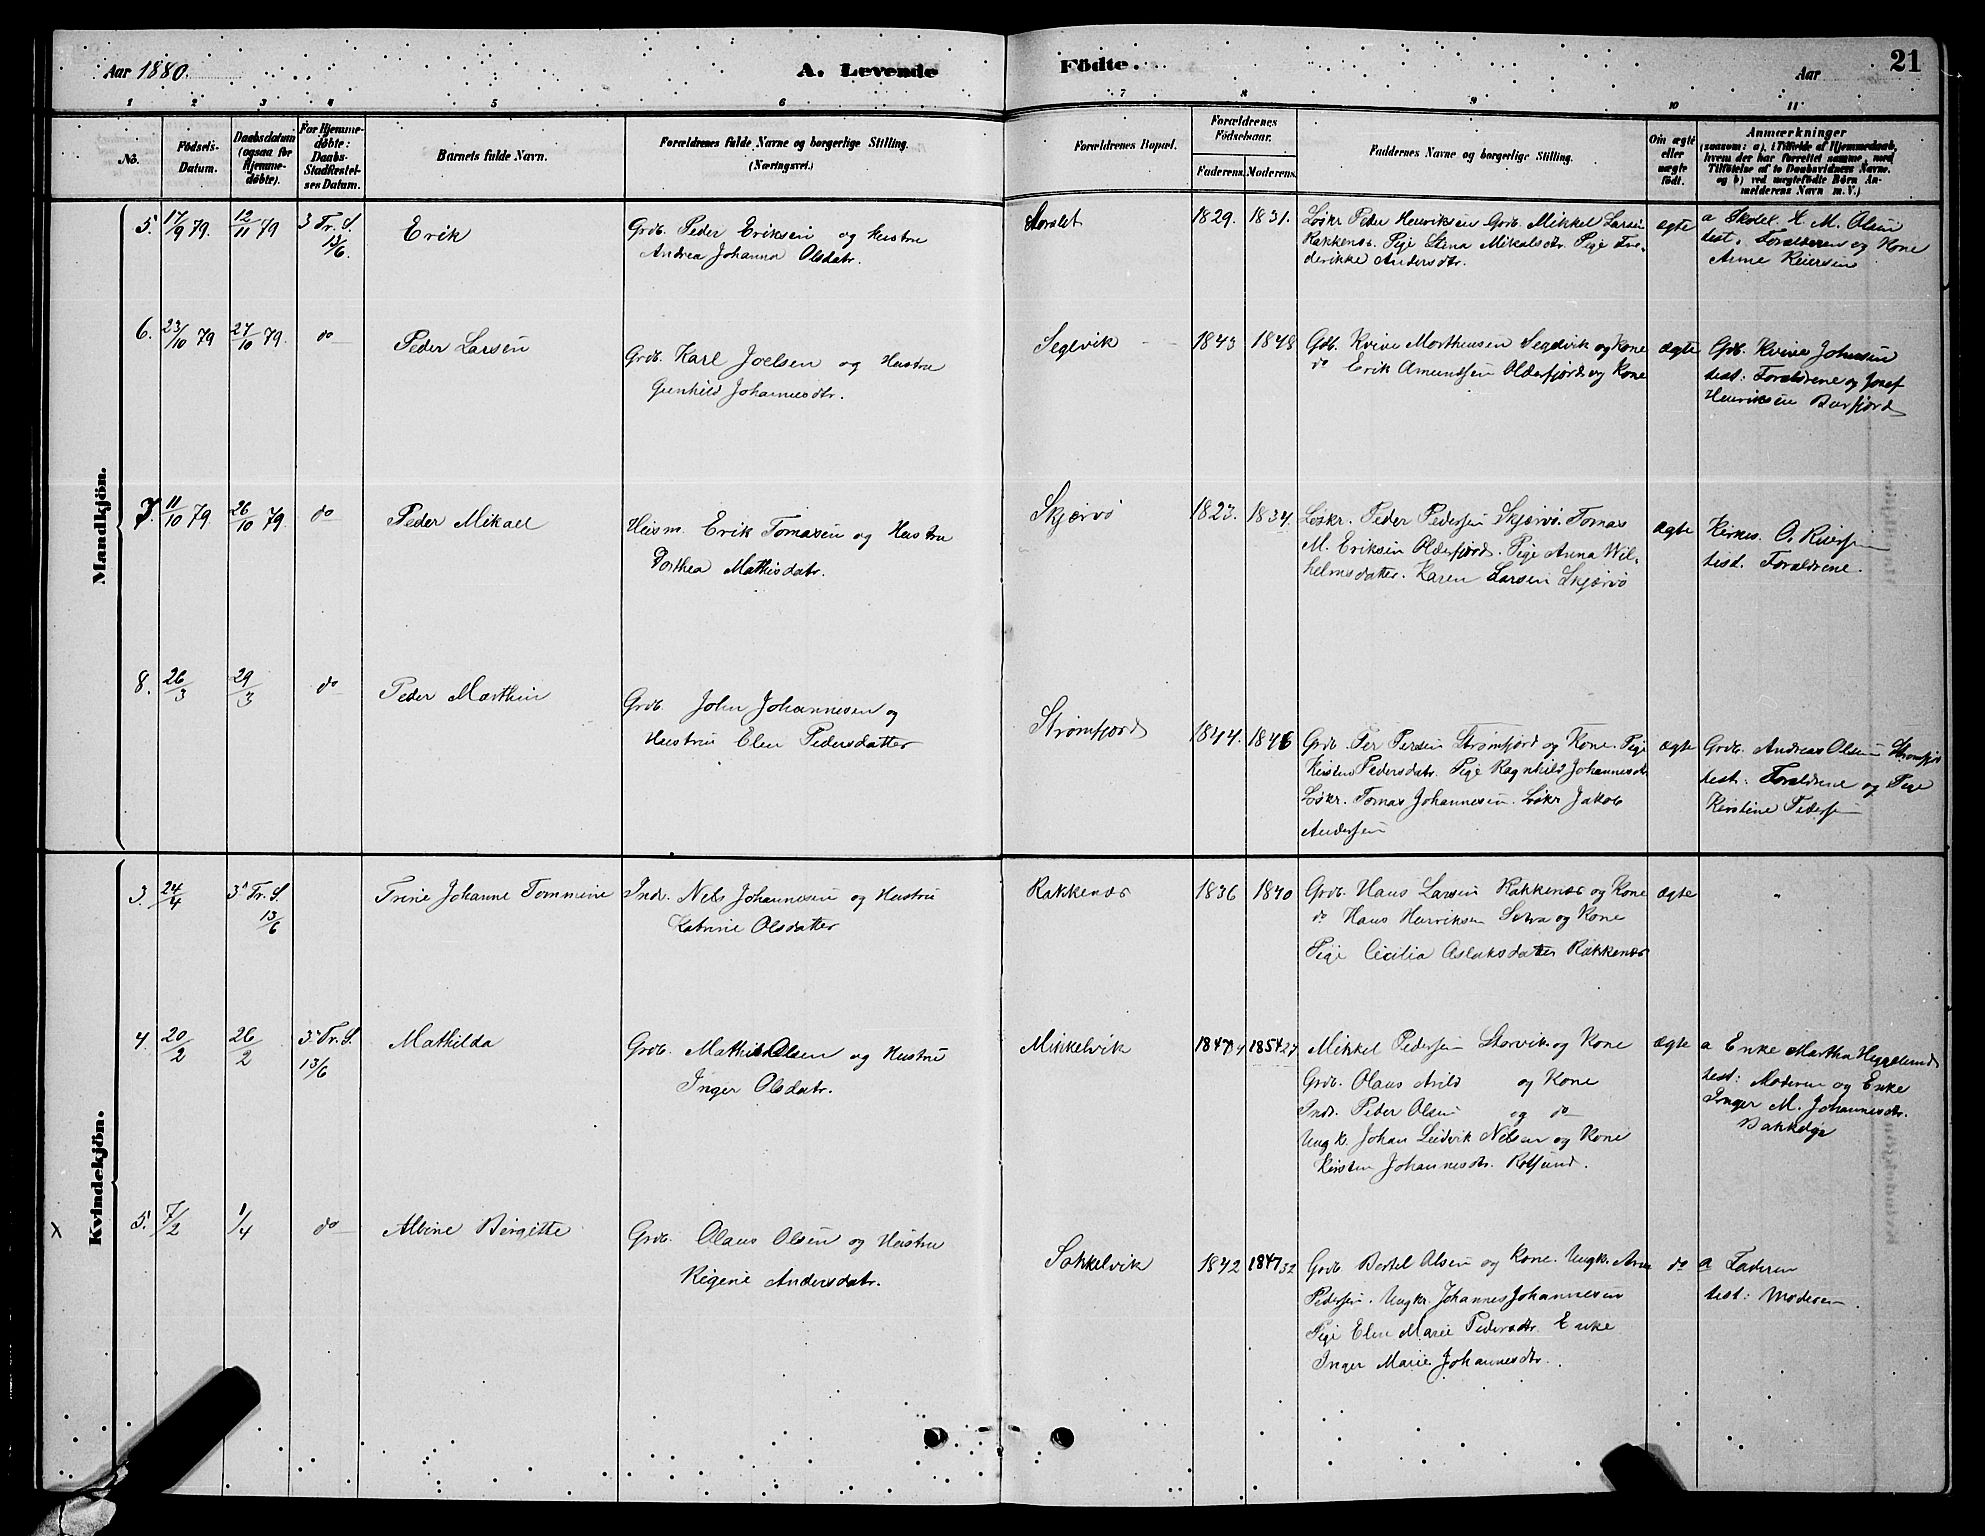 Aar 1880.
A. Levende
Födte.
Aar
21
1 2 3 4 5 6 7 8 9 10 11
No.
Födsels-Datum.
Daabsdatum (ogsaa for Hjemme-døbte).
For Hjemme-døbte: Daabs-Stadfæstel-ses Datum.
Barnets fulde Navn.
Forældrenes fulde Navne og borgerlige Stilling. (Næringsvei.)
Forældrenes Bopæl.
Forældrenes Födselsaar.
Faderens. Moderens.
Faddernes Navne og borgerlige Stilling.
Om ægte eller uægte födt.
Anmærkninger
(saasom: a), i Tilfælde af Hjemmedaab,
hvem der har forrettet samme, med
Tilföielse af to Daabsvidners Navne.
og b) ved uægtefödte Börn An-
melderens Navn m. V.)
Mandkjön.
5. 17/9 79. 12/11 79 3 Tr. S. 13/6. Erik
Grdb. Peder Eriksen og Hustru
Andrea Johanna Olsdatr.
Storslet 1829. 1831.
Løskr Peder Henriksen Grdb. Mikkel Larsen
Rakkenæs. Pige Stena Mikalsdtr. Pige Fre-
derikke Andersdtr.
ægte
a Skolel. H. M. Olsen
test. Forælderen og Kone
Anne Reiersen
6. 23/10 79 27/10 79. do Peder Larsen
Grdb. Karl Joelsen og Hustru
Gunhild Johannesdtr.
Segelvik 1843 1848
Gdb. Kvive Morthensen Segelvik og Kone
do Erik Amundsen Olderfjord og Kone
ægte
Gdb. Kvive Johnsen
test: Forældrene og Josef
Henriksen Burfjord
7. 11/10 79. 26/10 79. do Peder Mikael
Huusm. Erik Tomasen og Hustru
Dorthea Mathisdatr.
Skjærvø 1823. 1834.
Løskr. Peder Pedersen Skjærvø. Tomas
M. Eriksen Olderfjord. Pige Anna Wil-
helmsdatter. Karen Larsen Skjærvø
ægte
Kirkes. O. Reiersen
test. Forældrene.
8. 26/3 29/3 do Peder Marthin
Grdb. John Johannesen og
Hustru Elen Pedersdatter
Strømfjord 1844. 1846
Grdb. Per Persen Strømfjord og Kone. Pige
Kirsten Pedersdatr. Pige Ragnhild Johannesdtr.
Løskr. Tomas Johannesen. Løskr Jakob
Andersen
ægte
Grdb. Andreas Olsen Strømfjord
test: Forældrene og Pige
Kirstine Pedersen
Kvindekjön.
3. 24/4 3 Tr. S. 13/6 Trine Johanne Tommine
Indr. Nels Johannesen og Hustru
Katrine Olsdatter
Rakkenæs 1836 1840
Grdb. Hans Larsen Rakkenæs og Kone
do Hans Henriksen og Kone
Pige Cecilia Aslaksdatter Rakkenæs
ægte "
4. 20/2 26/2 3 Tr. S. 13/6 Mathilda
Grdb. Mathis Olsen og Hustru
Inger Olsdatr.
Mikkelvik 1847 1854
Mikkel Pedersen Storvik og Kone
Grdb. Olaus Arild og Kone
Indr. Peder Olsen og do
Ungk. Johan Ludvik Nelsen og Kone
Kirsten Johannesdtr. Rotsund.
ægte
a Enke Martha Heggelund
test: Moderen og Enke
Inger M. Johannesdtr.
X 5. 7/2 1/4 do Albine Birgitte
Grdb. Olaus Olsen og Hustru
Regine Andersdatr.
Sakkelvik 1842 1847
Grdb Bertel Olsen og Kone. Ungk. Arne
Pedersen. Ungkr. Johannes Johannesen
Pige Elen Marie Pedersdtr. Enke
Inger Marie Johannesdtr.
do
a Faderen
test: Moderen.